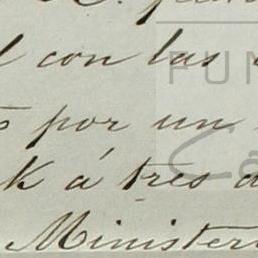 l con las
por un
k á tres
Ministeri
FUN
Cá